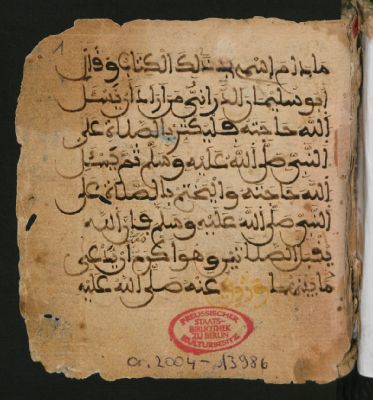 1
ما دام إسمي في ذلك الكتاب وقال
أبو سليمان الداراني من أراد أن يسئل
الله حاجته فليكثر بالصلاة على
النبي صلى الله عليه وسلم ثم يسئل
الله حاجته وليختم بالصلاة على
النبي صلى الله عليه وسلم فإن الله
يقبل الصلاتين وهو أكرم من أن يدع
ما بينهما وروي عنه صلى الله عليه
PREUSSISCHER
STAATS-
BIBLIOTHEK
ZU BERLIN
KULTURBESITZ
Or. 2004-13986